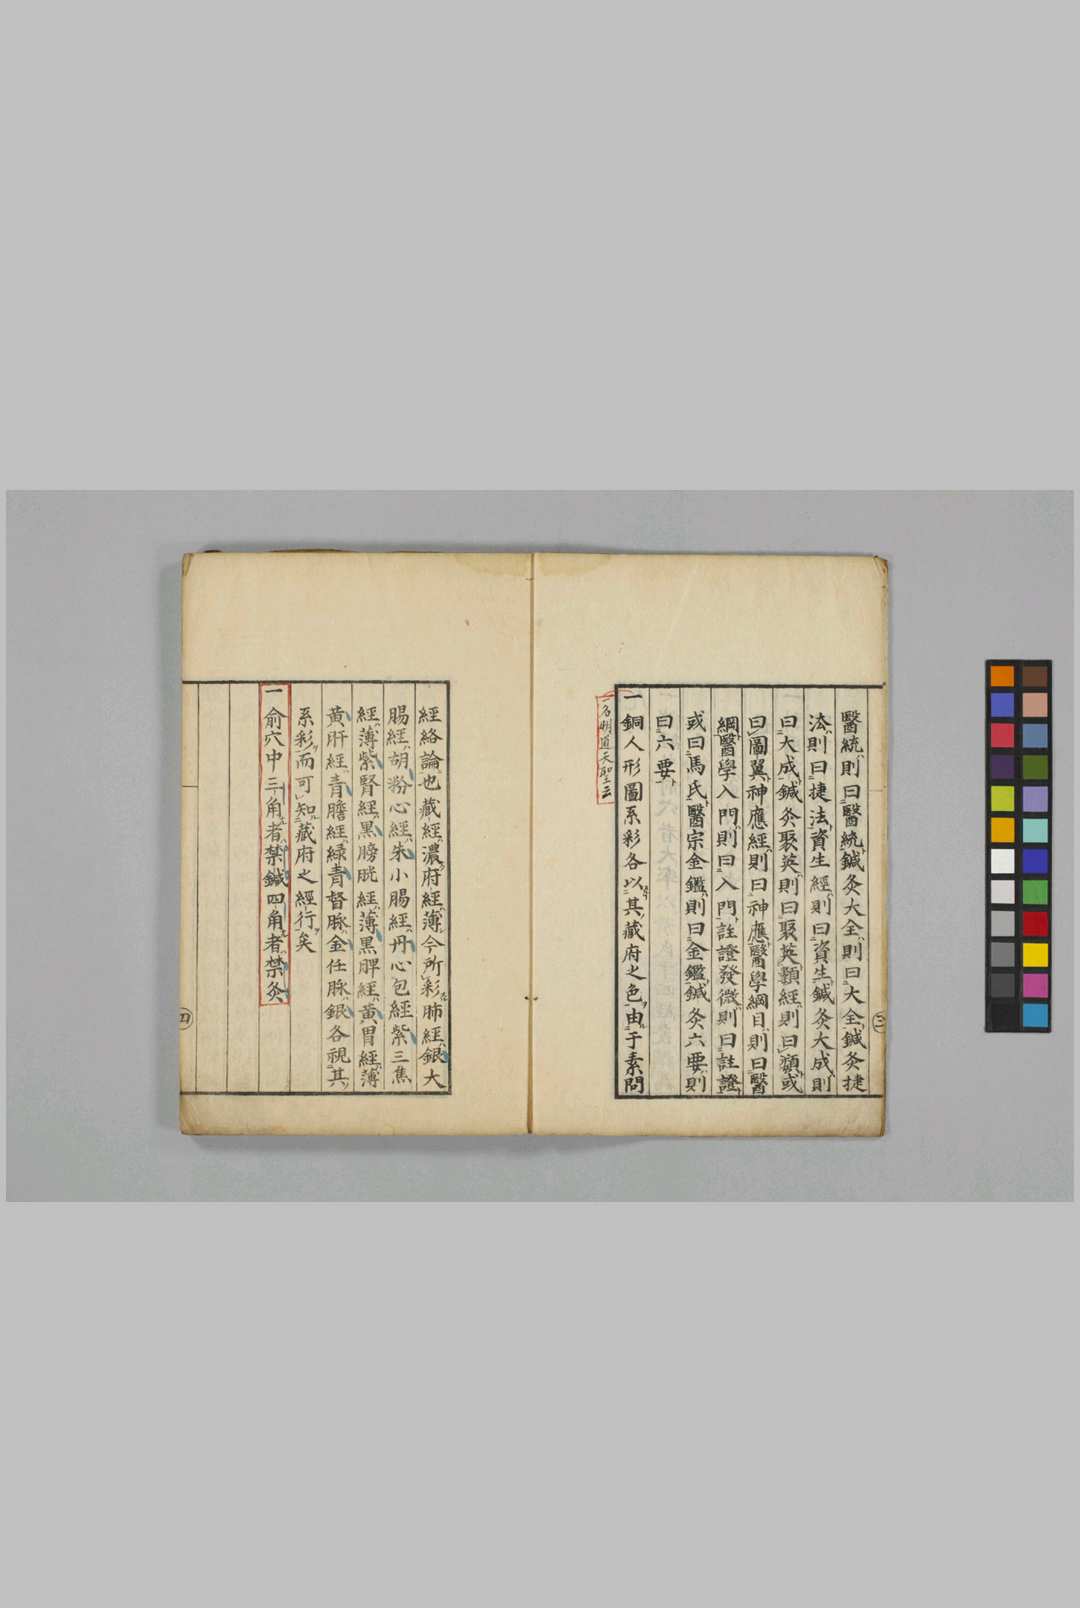 醫統則曰醫統鍼灸大全則曰大全鍼灸捷
法則曰捷法資生經則曰資生鍼灸大成則
曰大成鍼灸聚英則曰聚英類經則曰類或
曰圖翼神應經則曰神應醫學綱目則曰醫
綱醫學入門則曰入門註證發微則曰註證
或曰馬氏醫宗金鑑則曰金鑑鍼灸六要則
曰六要
一銅人形圖系彩各以其藏府之色由于素問
一名明道天聖云云
經絡論也藏經濃府經薄今所彩肺經銀大
腸經胡粉心經朱小腸經丹心包經紫三焦
經薄紫腎經黒膀胱經薄黒脾經黄胃經薄
黄肝經青膽經緑青督脉金任脉銀各視其
系彩而可知藏府之經行矣
一俞穴中三角者禁鍼四角者禁灸
三
四